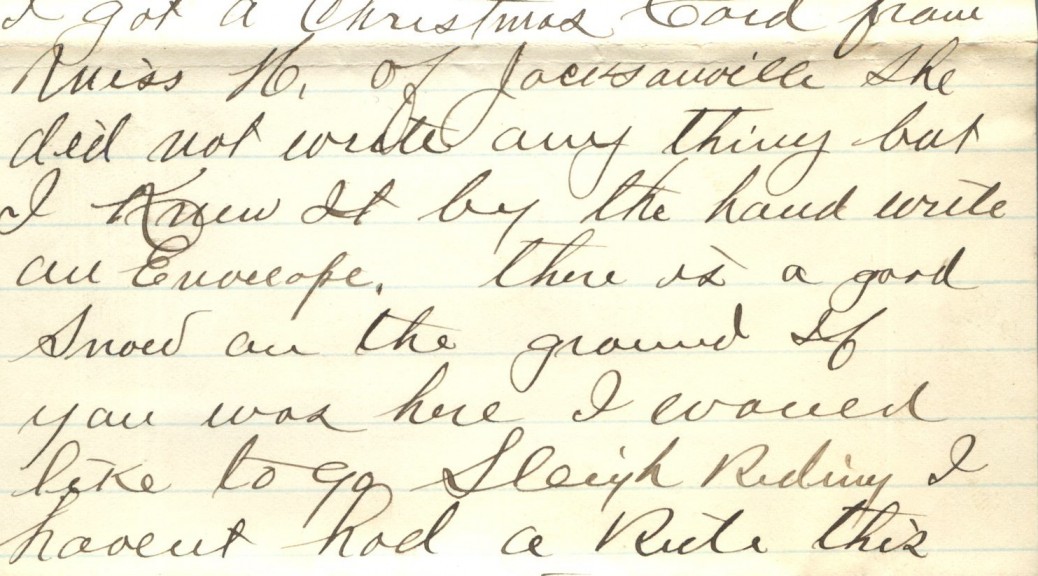 I got a Christmas Card from
Miss H. of Jacksonville She
did not write any thing but
I Knew It by the hand write
on Envelope. there is a good
Snow on the ground If
you was here I would
like to go Sleigh Riding I
havent had a Ride this